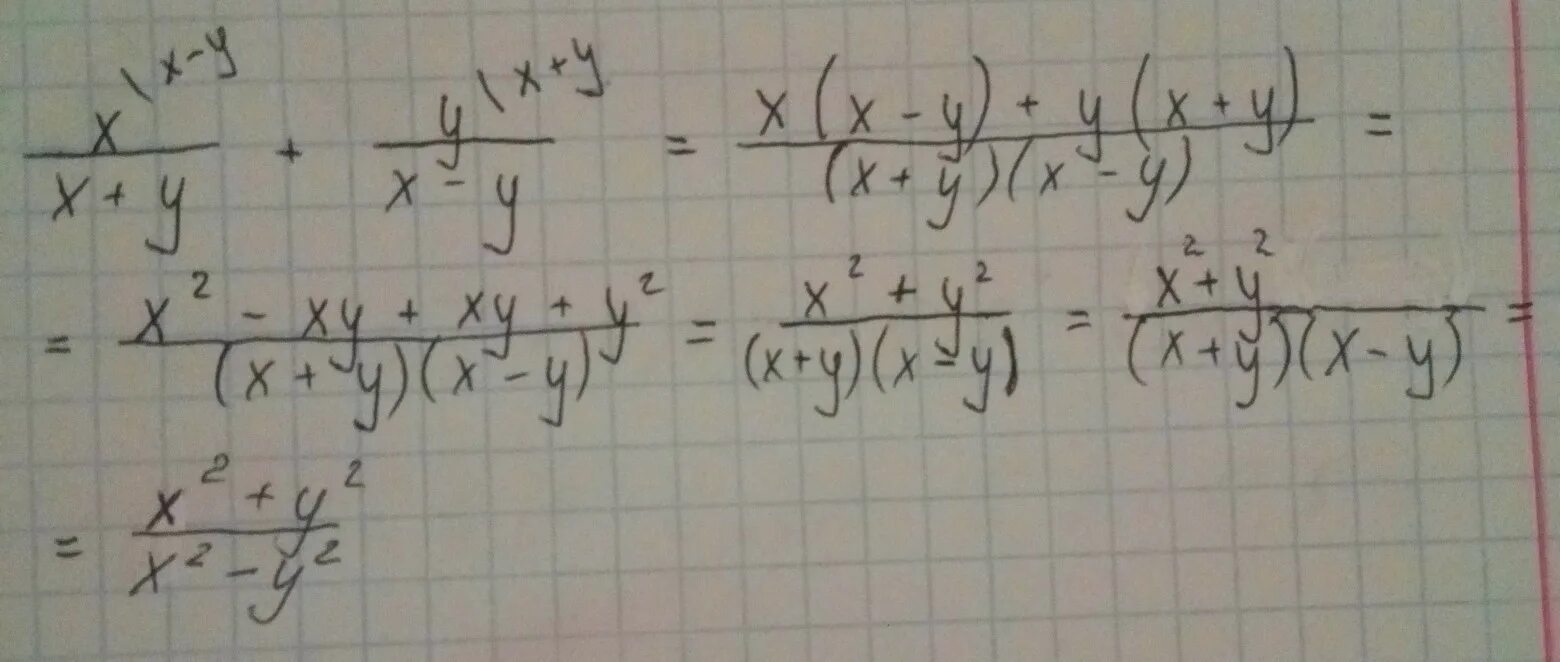 x\x-y / x+y + y\x+y / x-y = x(x-y)+y(x+y) / (x+y)(x-y) =
= x²-xy+xy+y² / (x+y)(x-y) = x²+y² / (x+y)(x-y) = x²+y² / (x+y)(x-y) =
= x²+y² / x²-y²